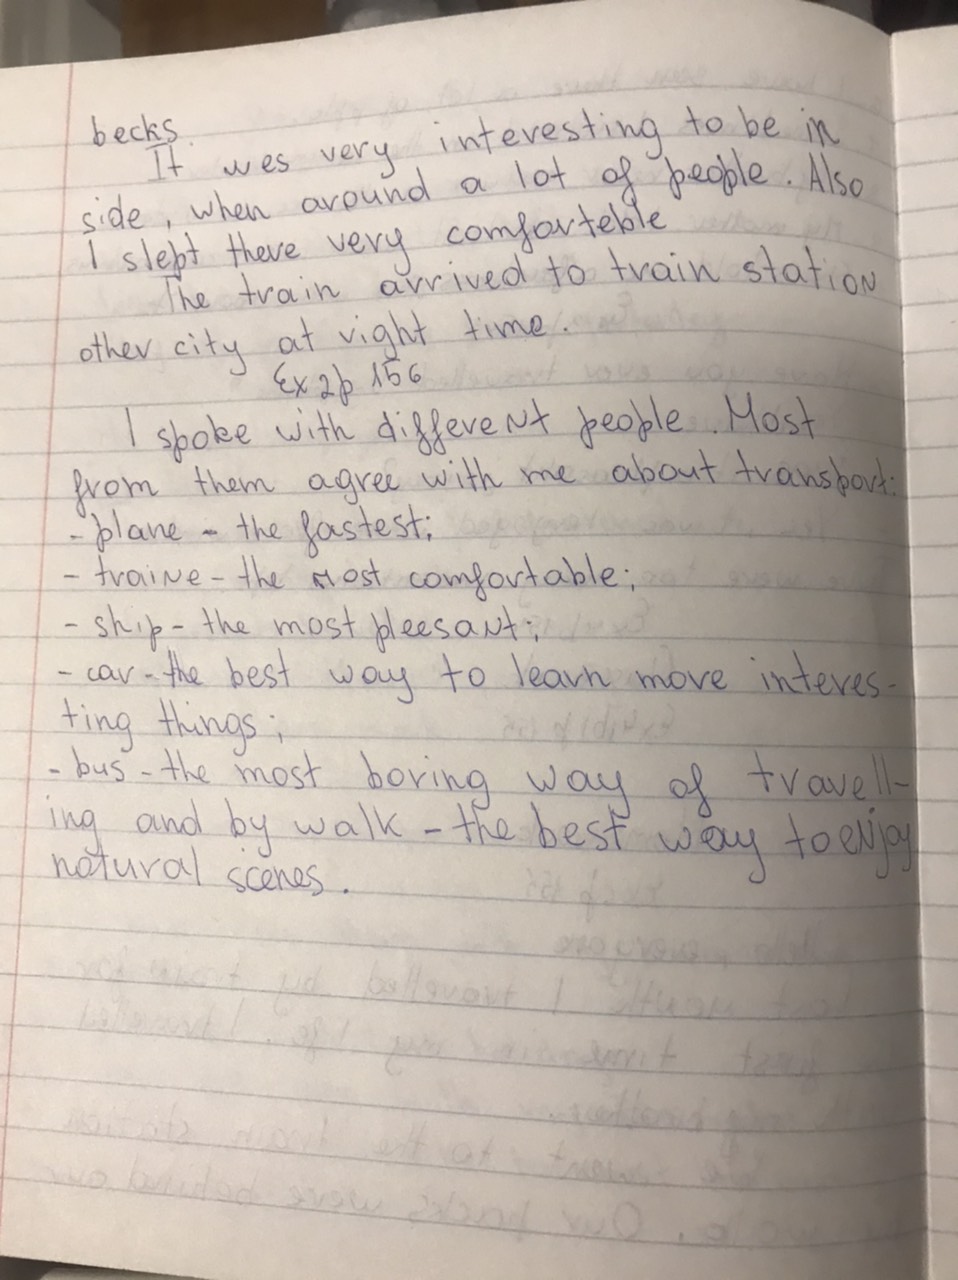 becks.
It wes very interesting to be in
side, when around a lot of people. Also
I slept there very comforteble
The train arrived to train station
other city at right time.
Ex 2p 156
I spoke with different people. Most
from them agree with me about transport:
- plane - the fastest;
- traine - the most comfortable;
- ship - the most pleesant;
- car - the best way to learn more interes-
ting things;
- bus - the most boring way of travell-
ing and by walk - the best way to enjoy
natural scenes.